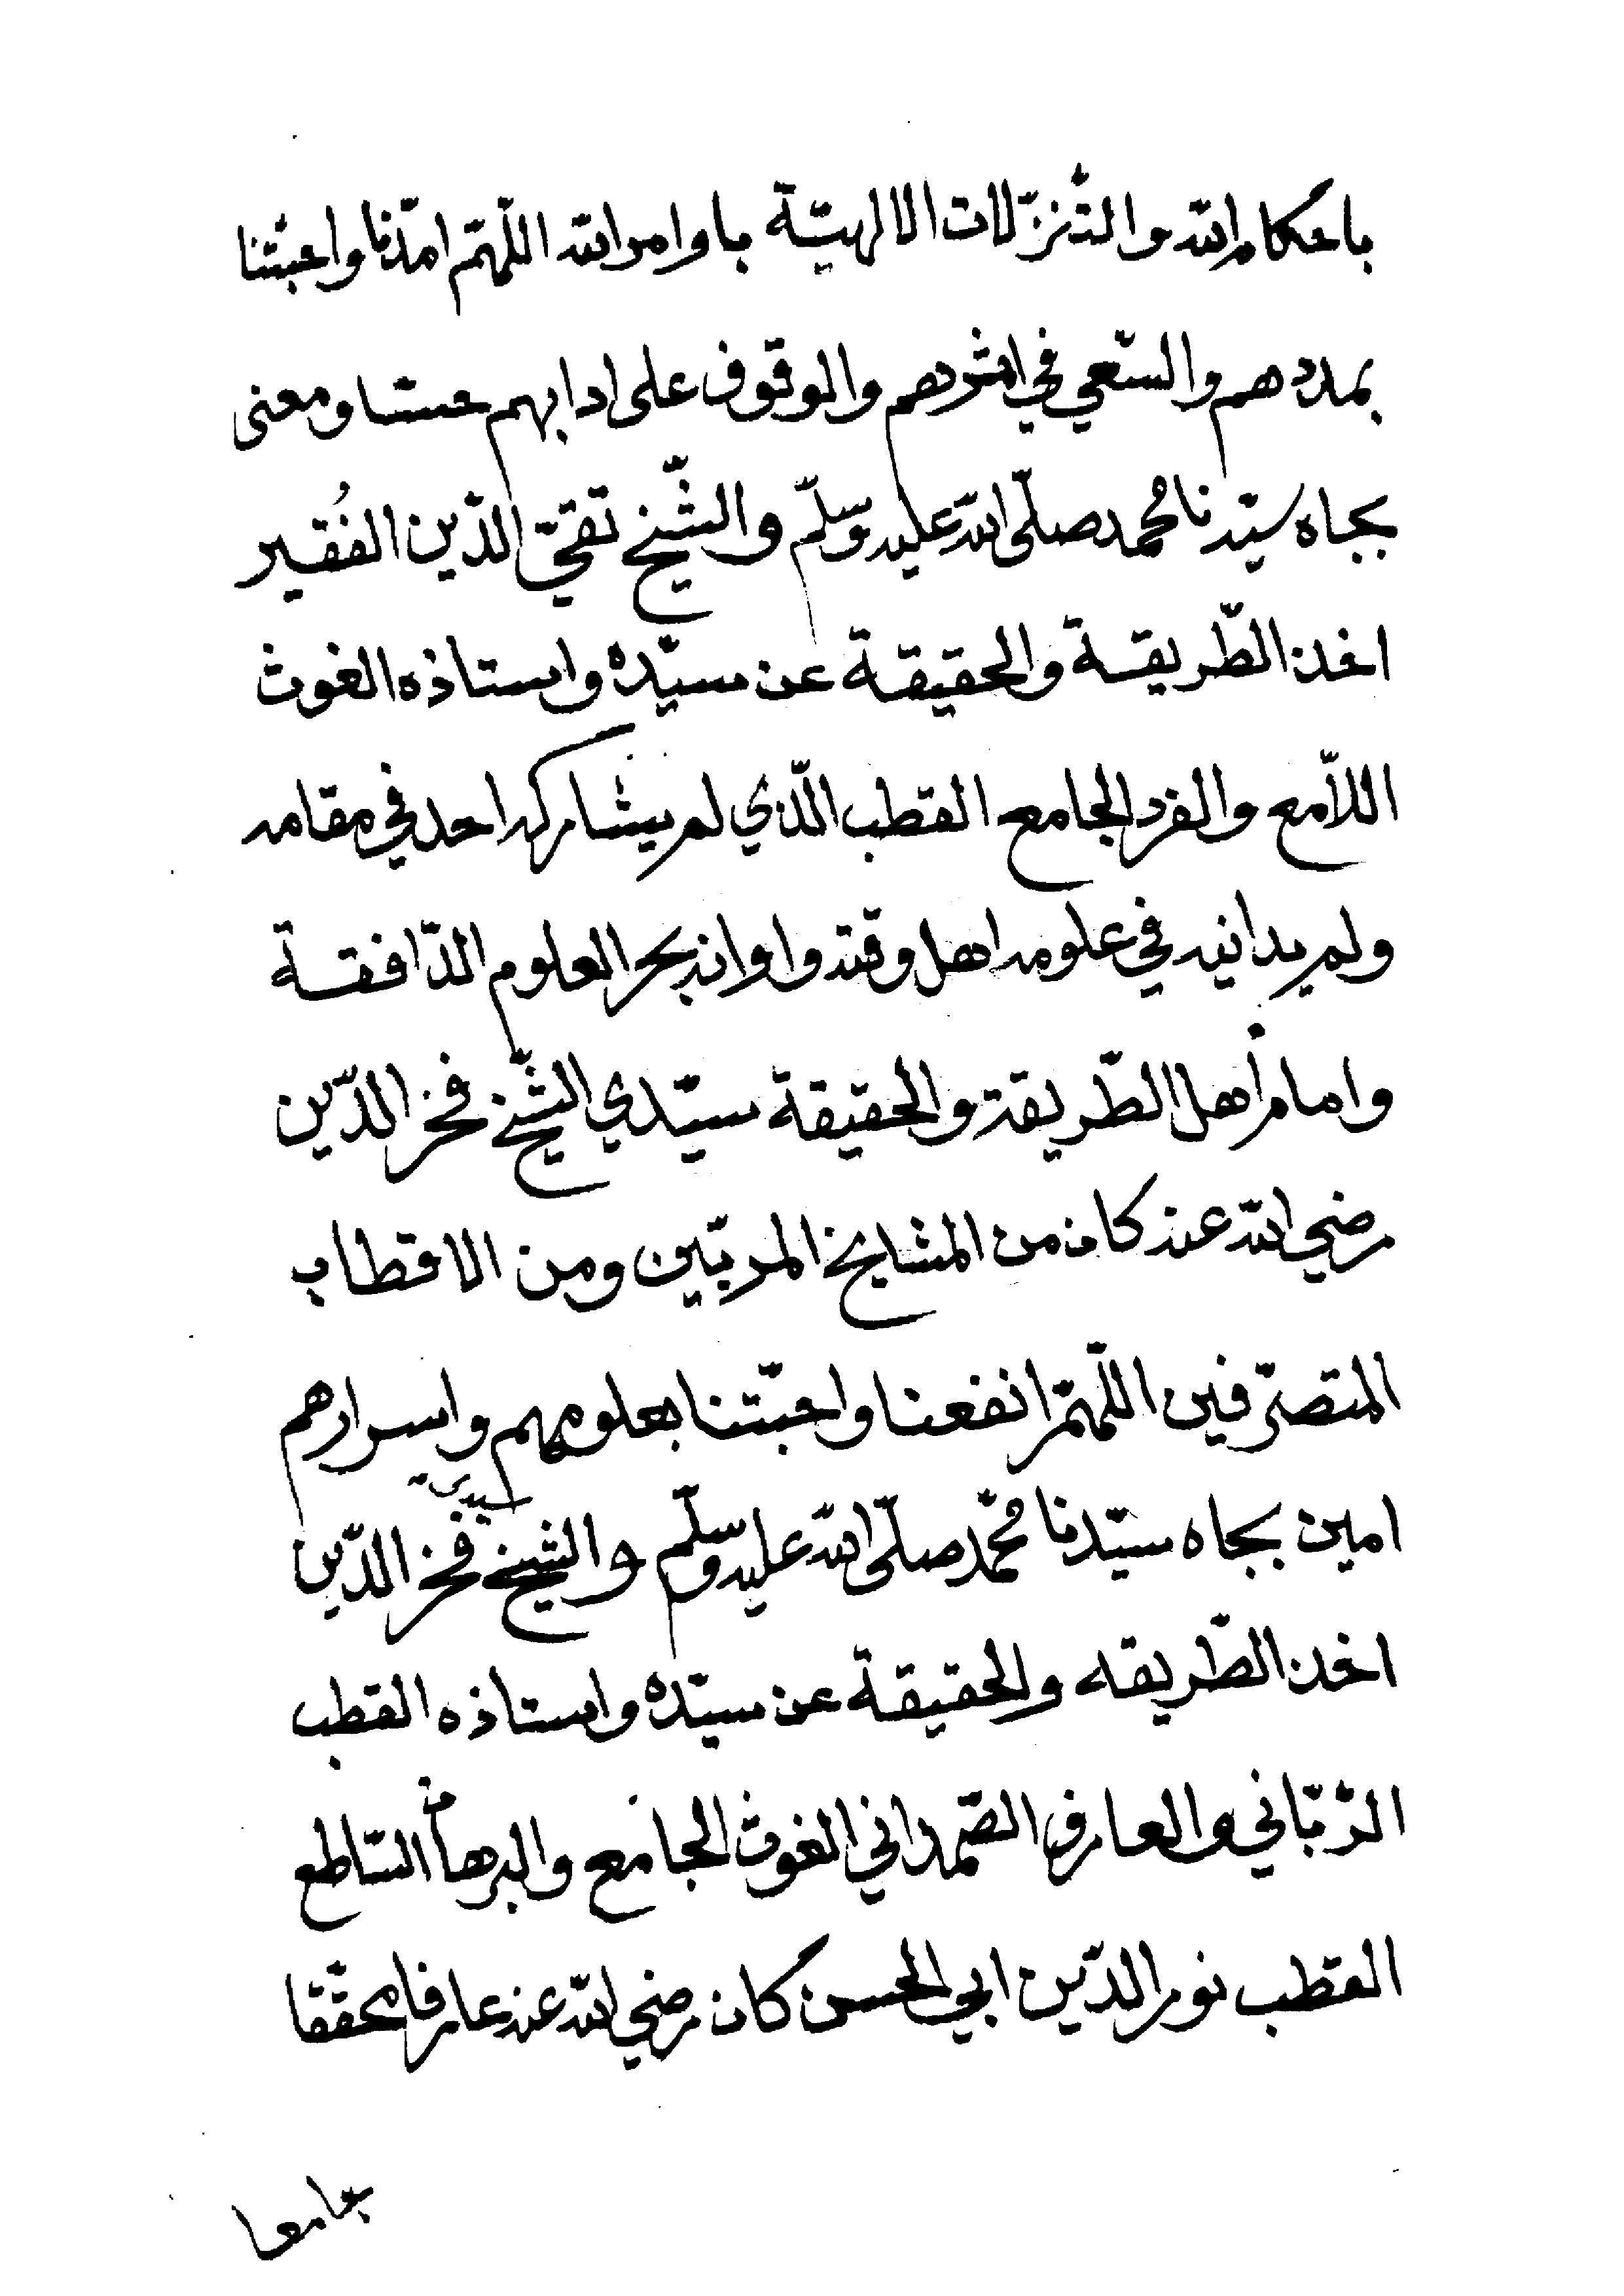 باحكام الله والتّنزّلات الالهيّة باوامر الله اللّهمّ امدّنا واحبّتنا
بمددهم والسّعي في اثرهم والوقوف على ادابهم حسّا ومعنى
بجاه سيّدنا محمد صلّى الله عليه وسلّم والشّيخ تقيّ الدّين الفُقير
اخذ الطّريقة والحقيقة عن سيّده واستاذه الغوث
اللاّمع والفرد الجامع القطب الّذي لم يشاركه احد في مقامه
ولم يدانيه في علومه اهل وقته واوانه بحر العلوم الدّافقة
وامام أهل الطّريقة والحقيقة سيّدي الشّيخ فخر الدّين
رضي الله عنه كان من المشايخ المربّين ومن الاقطاب
المتصرّفين اللّهمّ انفعنا واحبّتنا بعلومهم واسرارهم
امين بجاه سيّدنا محمّد صلّى الله عليه وسلّم والشيخ سيدى فخر الدّين
اخذ الطّريقه والحقيقة عن سيّده واستاذه القطب
الرّبّاني والعارف الصّمداني الغوث الجامع والبرهان السّاطع
القطب نور الدّين ابي الحسن كان رضي الله عنه عارفا محقّقا
جامعا